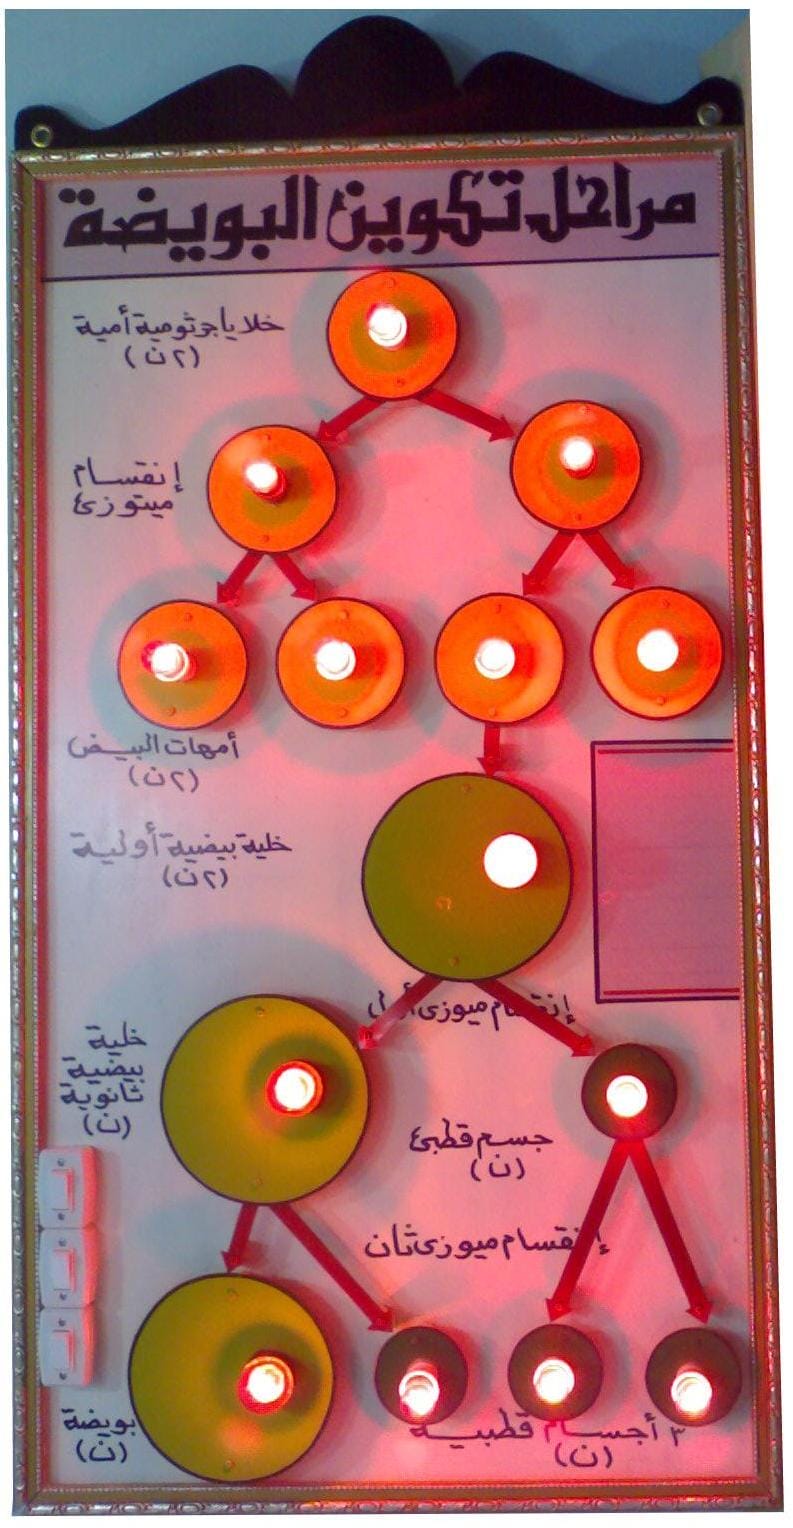 مراحل تكوين البويضة
خلايا جرثومية أمية
(٢ن)
إنقسام
ميتوزى
أمهات البيض
(٢ن)
خلية بيضية أولية
(٢ن)
إنقسام ميوزى أول
خلية
بيضية
ثانوية
(ن)
جسم قطبى
(ن)
إنقسام ميوزى ثان
بويضة
(ن)
٣ أجسام قطبية
(ن)